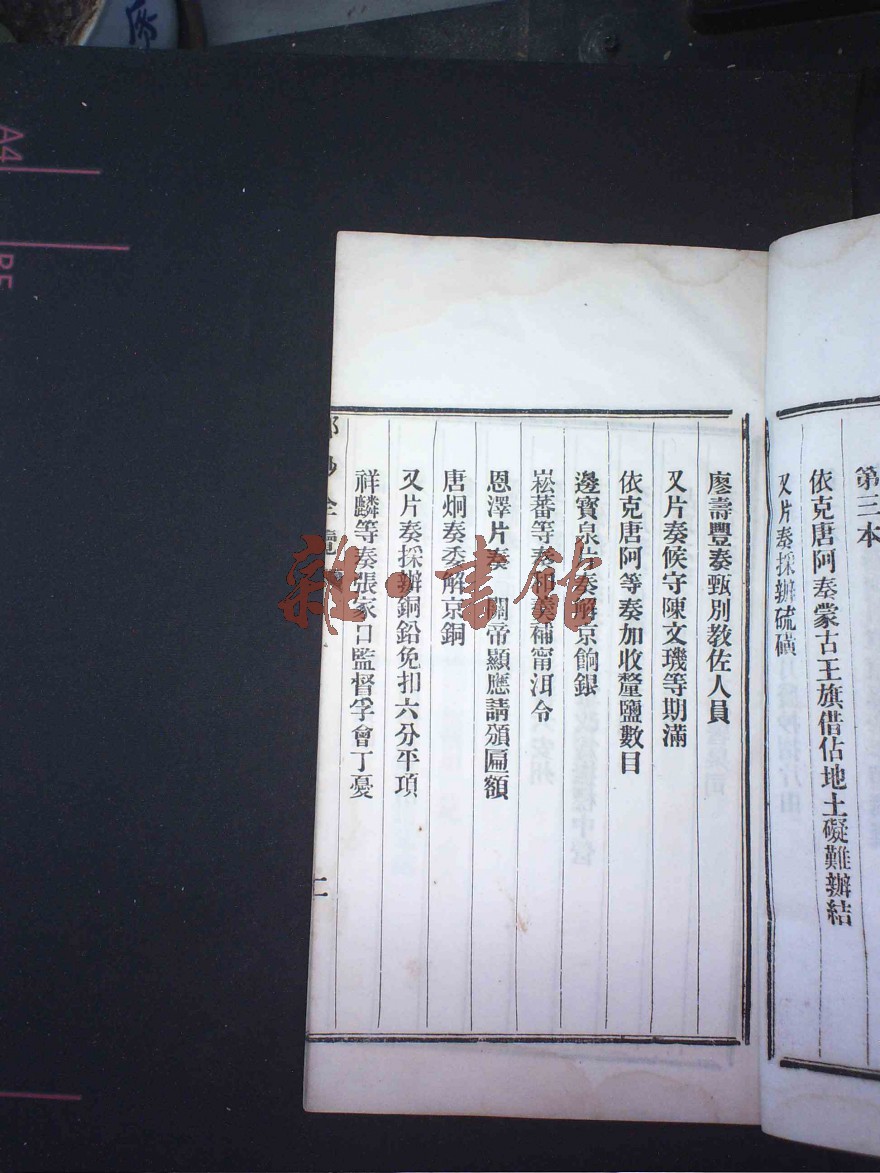 第三本
依克唐阿奏蒙古王旗借佔地土礙難辦結
又片奏採辦硫磺
廖壽豐奏甄別教佐人員
又片奏候守陳文璣等期滿
依克唐阿等奏加收釐鹽數目
邊寶泉片奏解京餉銀
崧蕃等奏和奠補甯洱令
恩澤片奏 關帝顯應請頒匾額
唐炯奏委解京銅
又片奏採辦銅鉛免扣六分平項
祥麟等奏張家口監督孚會丁憂
邸鈔全覽
二
雜·書館
A4